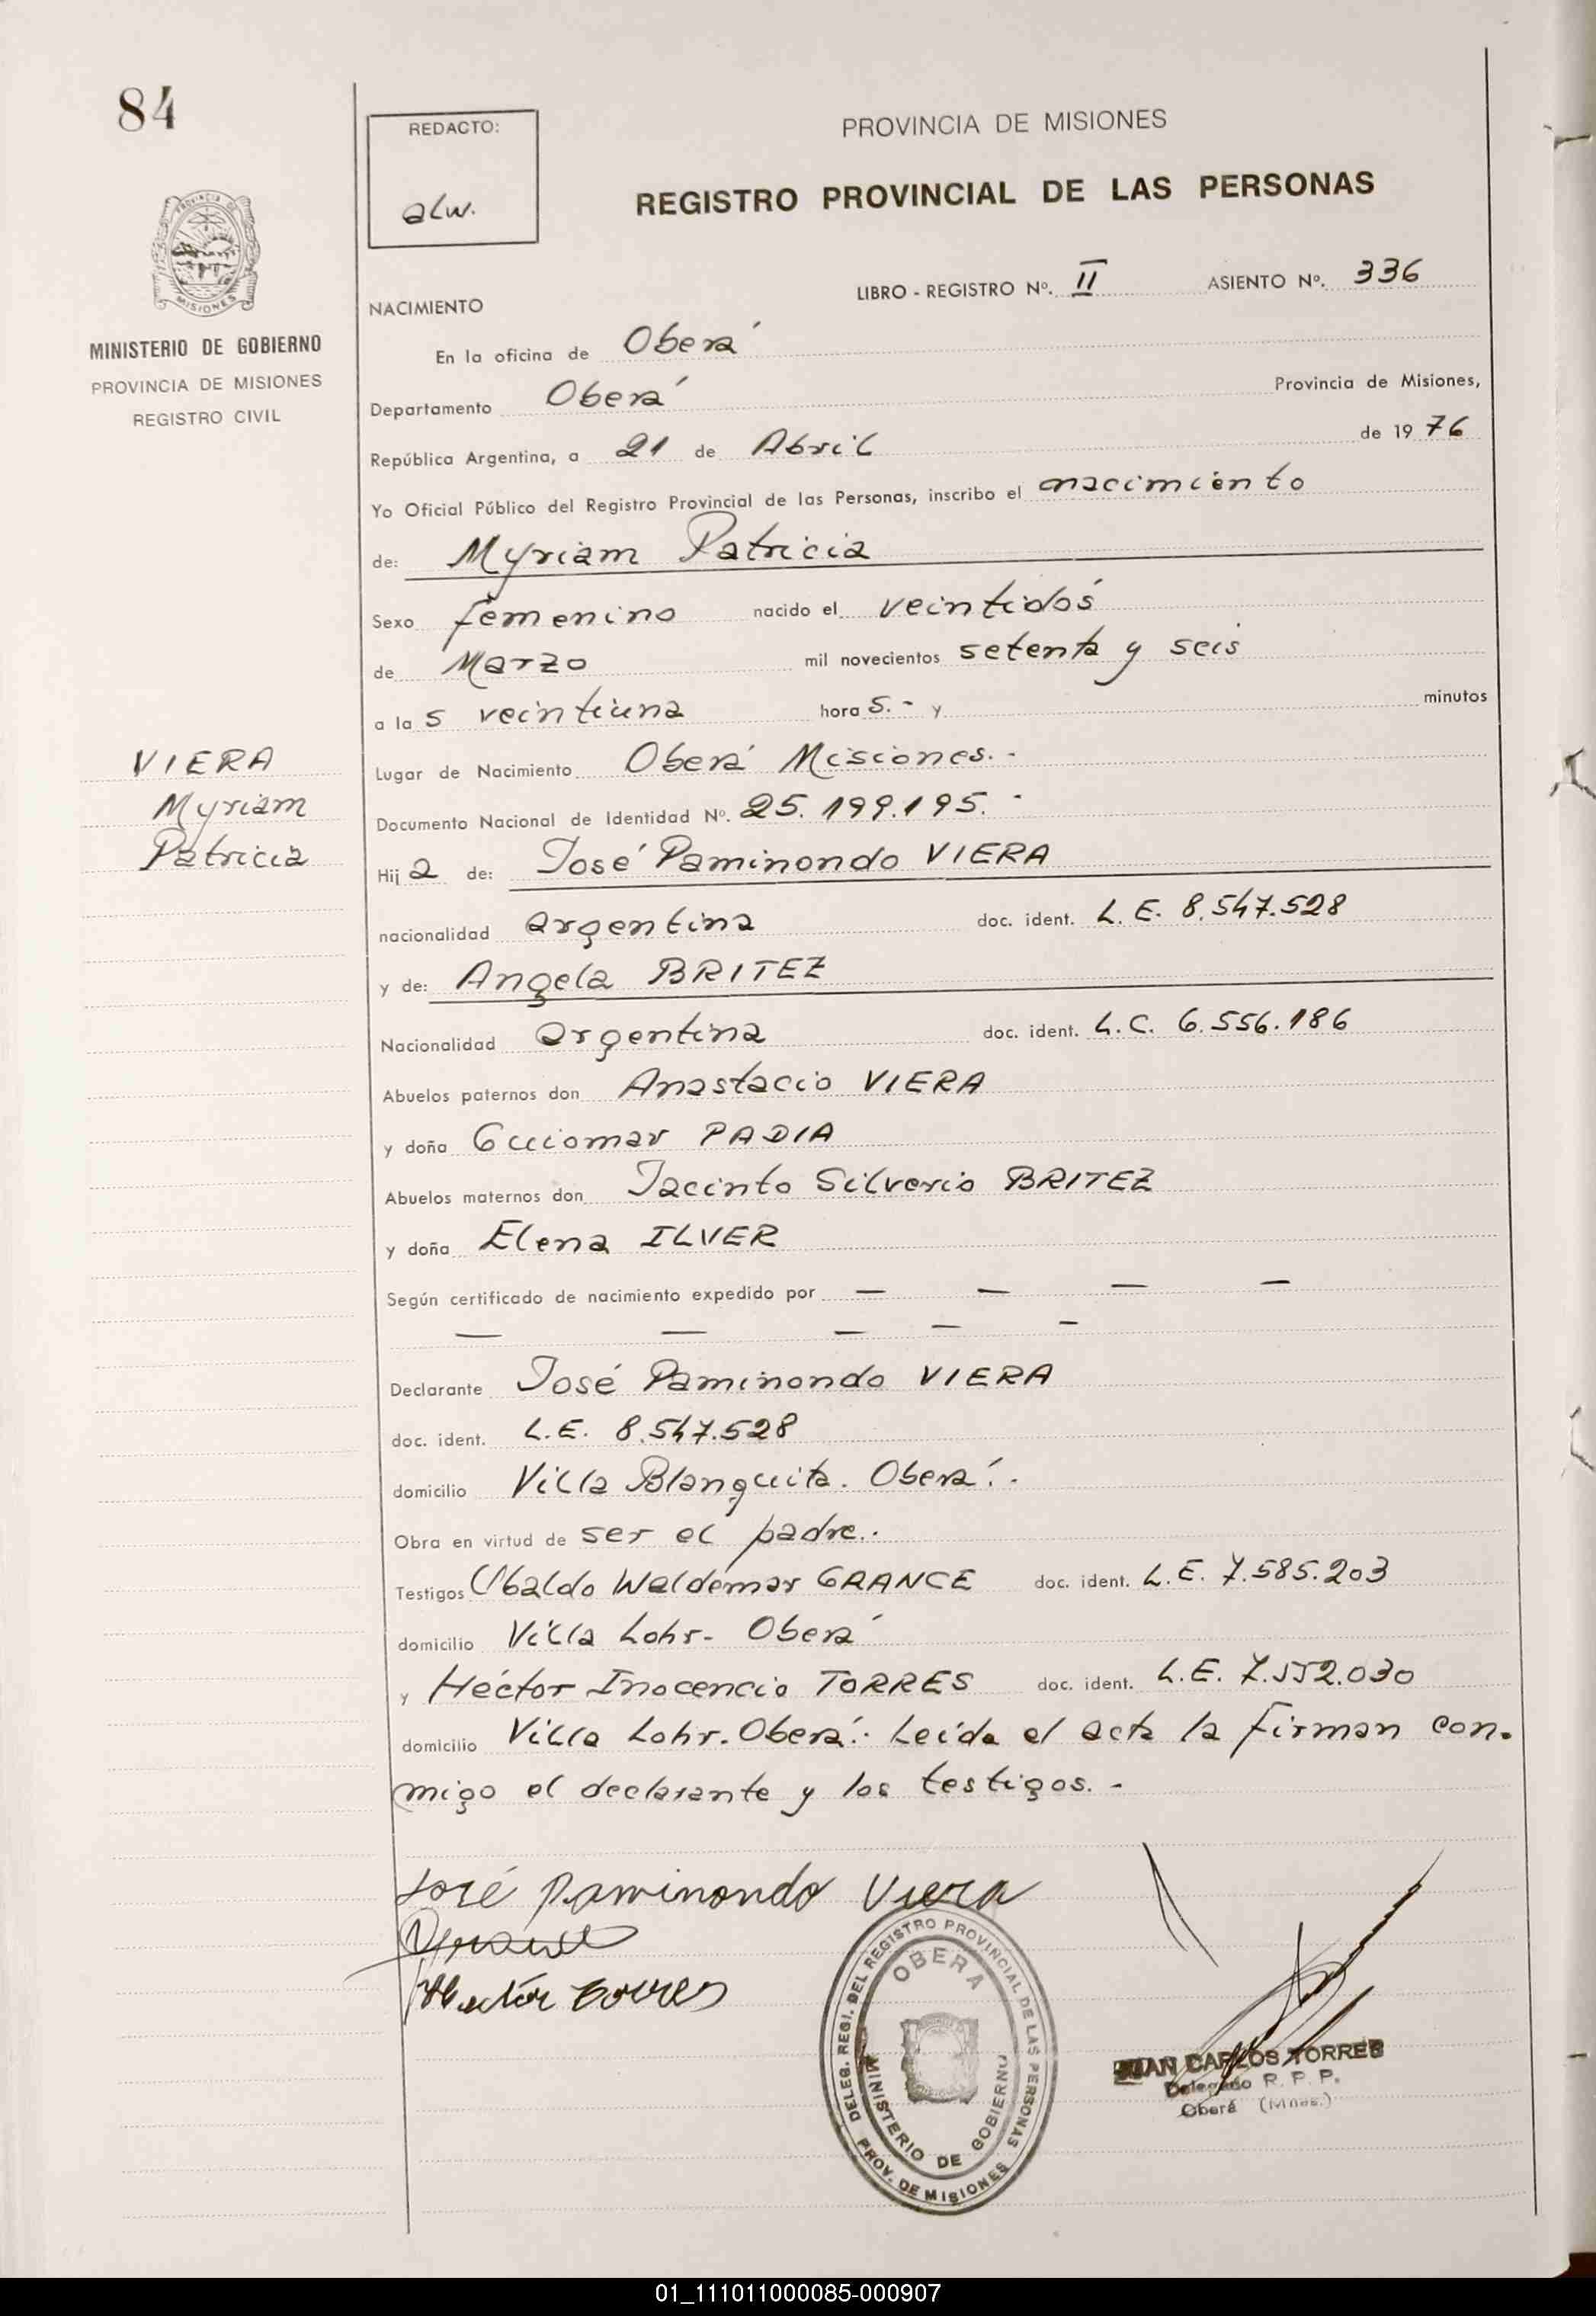 84
REDACTO:
alw.
PROVINCIA DE MISIONES
REGISTRO PROVINCIAL DE LAS PERSONAS
PROVINCIA DE
MISIONES
MINISTERIO DE GOBIERNO
PROVINCIA DE MISIONES
REGISTRO CIVIL
LIBRO - REGISTRO Nº. II ASIENTO Nº. 336
NACIMIENTO
En la oficina de Oberá
Departamento Oberá Provincia de Misiones,
República Argentina, a 21 de Abril de 19 76
Yo Oficial Público del Registro Provincial de las Personas, inscribo el nacimiento
de: Myriam Patricia
Sexo femenino nacido el veintidós
de Marzo mil novecientos setenta y seis
a la s veintiuna hora s.- y minutos
VIERA
Myriam
Patricia
Lugar de Nacimiento Oberá Misiones.-
Documento Nacional de Identidad Nº. 25.199.195.-
Hij a de: José Paminondo VIERA
nacionalidad argentina doc. ident. L.E. 8.547.528
y de: Angela BRITEZ
Nacionalidad argentina doc. ident. L.C. 6.556.186
Abuelos paternos don Anastacio VIERA
y doña Guiomar PADIA
Abuelos maternos don Jacinto Silverio BRITEZ
y doña Elena ILVER
Según certificado de nacimiento expedido por — — — —
— — — — -
Declarante José Paminondo VIERA
doc. ident. L.E. 8.547.528
domicilio Villa Blanquita. Oberá.-
Obra en virtud de ser el padre.-
Testigos Ubaldo Waldemar GRANCE doc. ident. L.E. 7.585.203
domicilio Villa Lohr- Oberá
y Héctor Inocencio TORRES doc. ident. L.E. 7.552.030
domicilio Villa Lohr. Oberá.- Leída el acta la firman con-
migo el declarante y los testigos.-
José Paminondo Viera
Hector Torres
DELEG. REGI. DEL REGISTRO PROVINCIAL DE LAS PERSONAS
OBERA
MINISTERIO DE GOBIERNO
PROV. DE MISIONES
JUAN CARLOS TORRES
Delegado R. P. P.
Oberá (Mnes.)
01_111011000085-000907